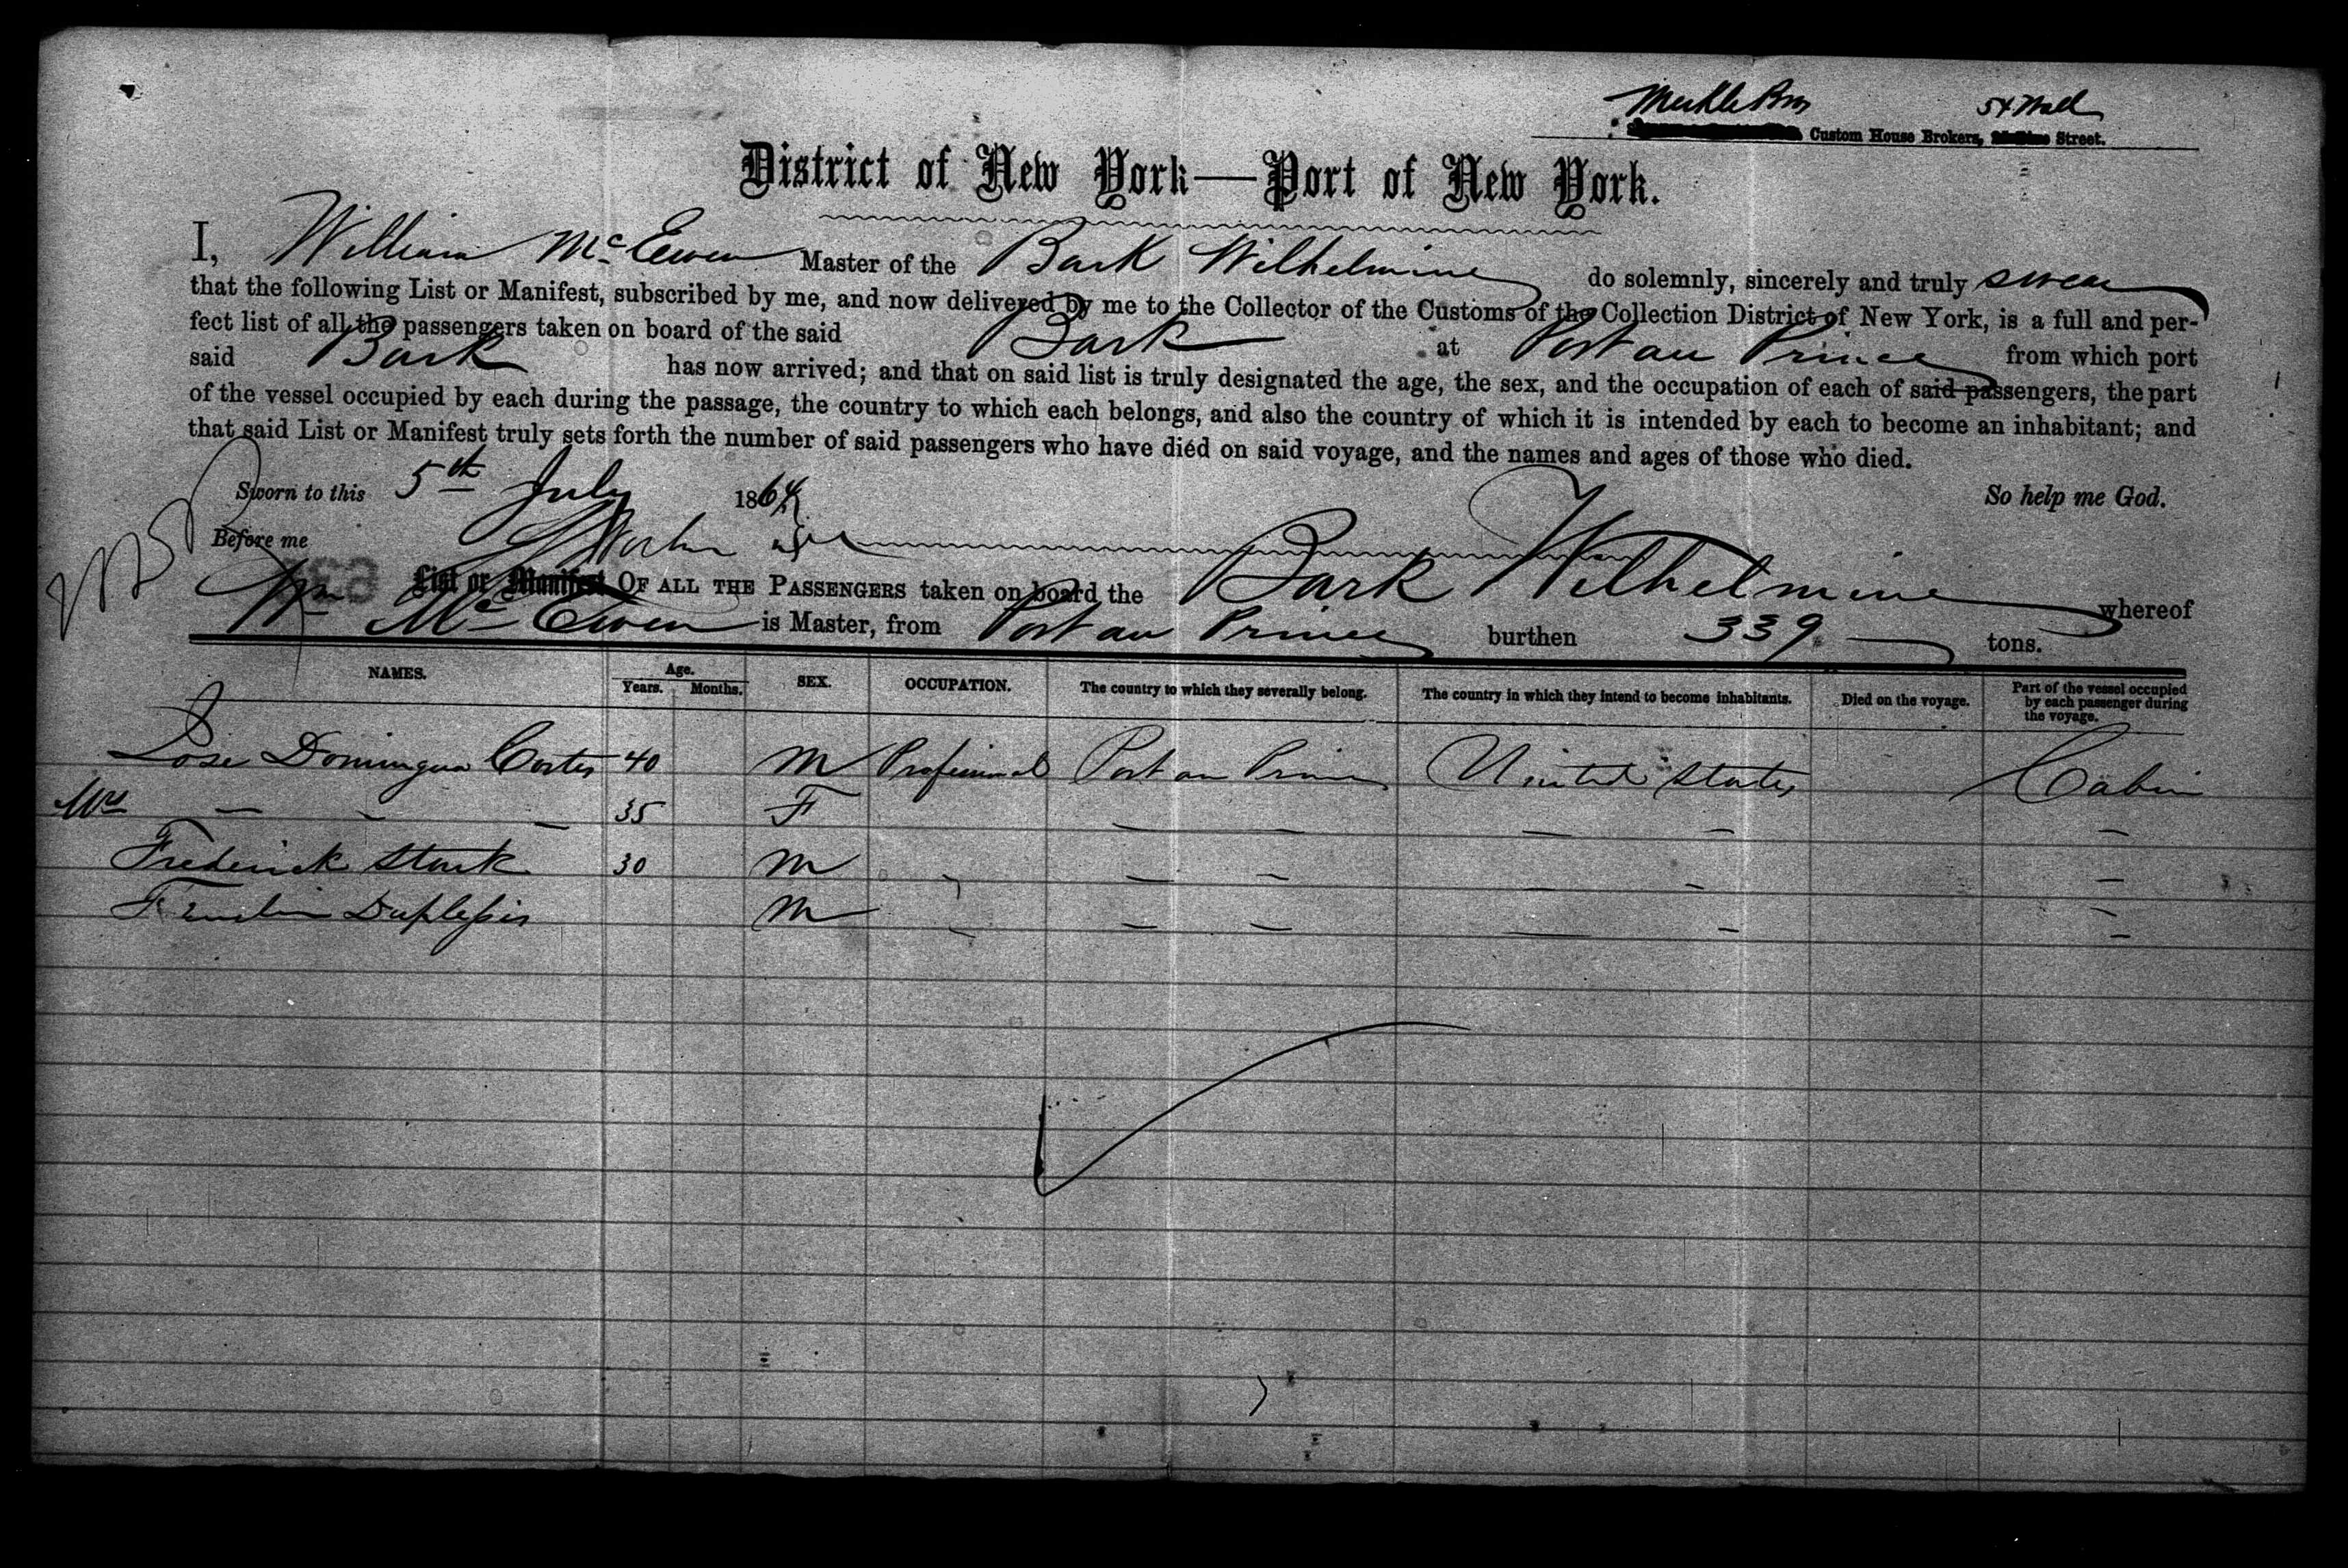 Bros 54 Wall
Custom House Brokers, Street.
District of New York—Port of New York.
I, William McEwen Master of the Bark Wilhelmine do solemnly, sincerely and truly swear
that the following List or Manifest, subscribed by me, and now delivered by me to the Collector of the Customs of the Collection District of New York, is a full and per-
fect list of all the passengers taken on board of the said Bark at Port au Prince from which port
said Bark has now arrived; and that on said list is truly designated the age, the sex, and the occupation of each of said passengers, the part
of the vessel occupied by each during the passage, the country to which each belongs, and also the country of which it is intended by each to become an inhabitant; and
that said List or Manifest truly sets forth the number of said passengers who have died on said voyage, and the names and ages of those who died.
Sworn to this 5th July 1864 So help me God.
Before me
List or Manifest OF ALL THE PASSENGERS taken on board the Bark Wilhelmine whereof
Wm McEwen is Master, from Port au Prince burthen 339 tons.
NAMES. Age. Years. Months. SEX. OCCUPATION. The country to which they severally belong. The country in which they intend to become inhabitants. Died on the voyage. Part of the vessel occupied by each passenger during the voyage.
Jose Domingua Cortes 40 M Professional Port au Prince United States Cabin
Mrs — — — 35 F — — — — —
Frederick Stark 30 M — — — — —
Duplessis M — — — — —